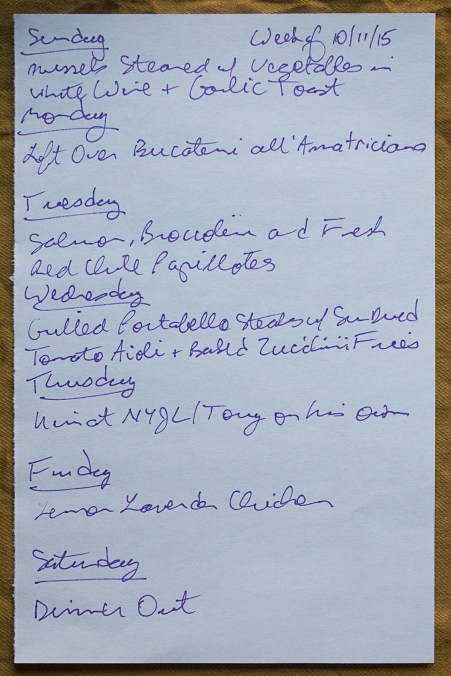 Sunday Week of 10/11/15
Mussels Steamed w/ Vegetables in
White Wine + Garlic Toast
Monday
Left Over Bucatini all'Amatriciana
Tuesday
Salmon, Broccolini and Fresh
Red Chile Papillotes
Wednesday
Grilled Portabello Steaks w/ SunDried
Tomato Aioli + Baked Zucchini Fries
Thursday
at NYJL/Tony on his own
Friday
Lemon Lavender Chicken
Saturday
Dinner Out